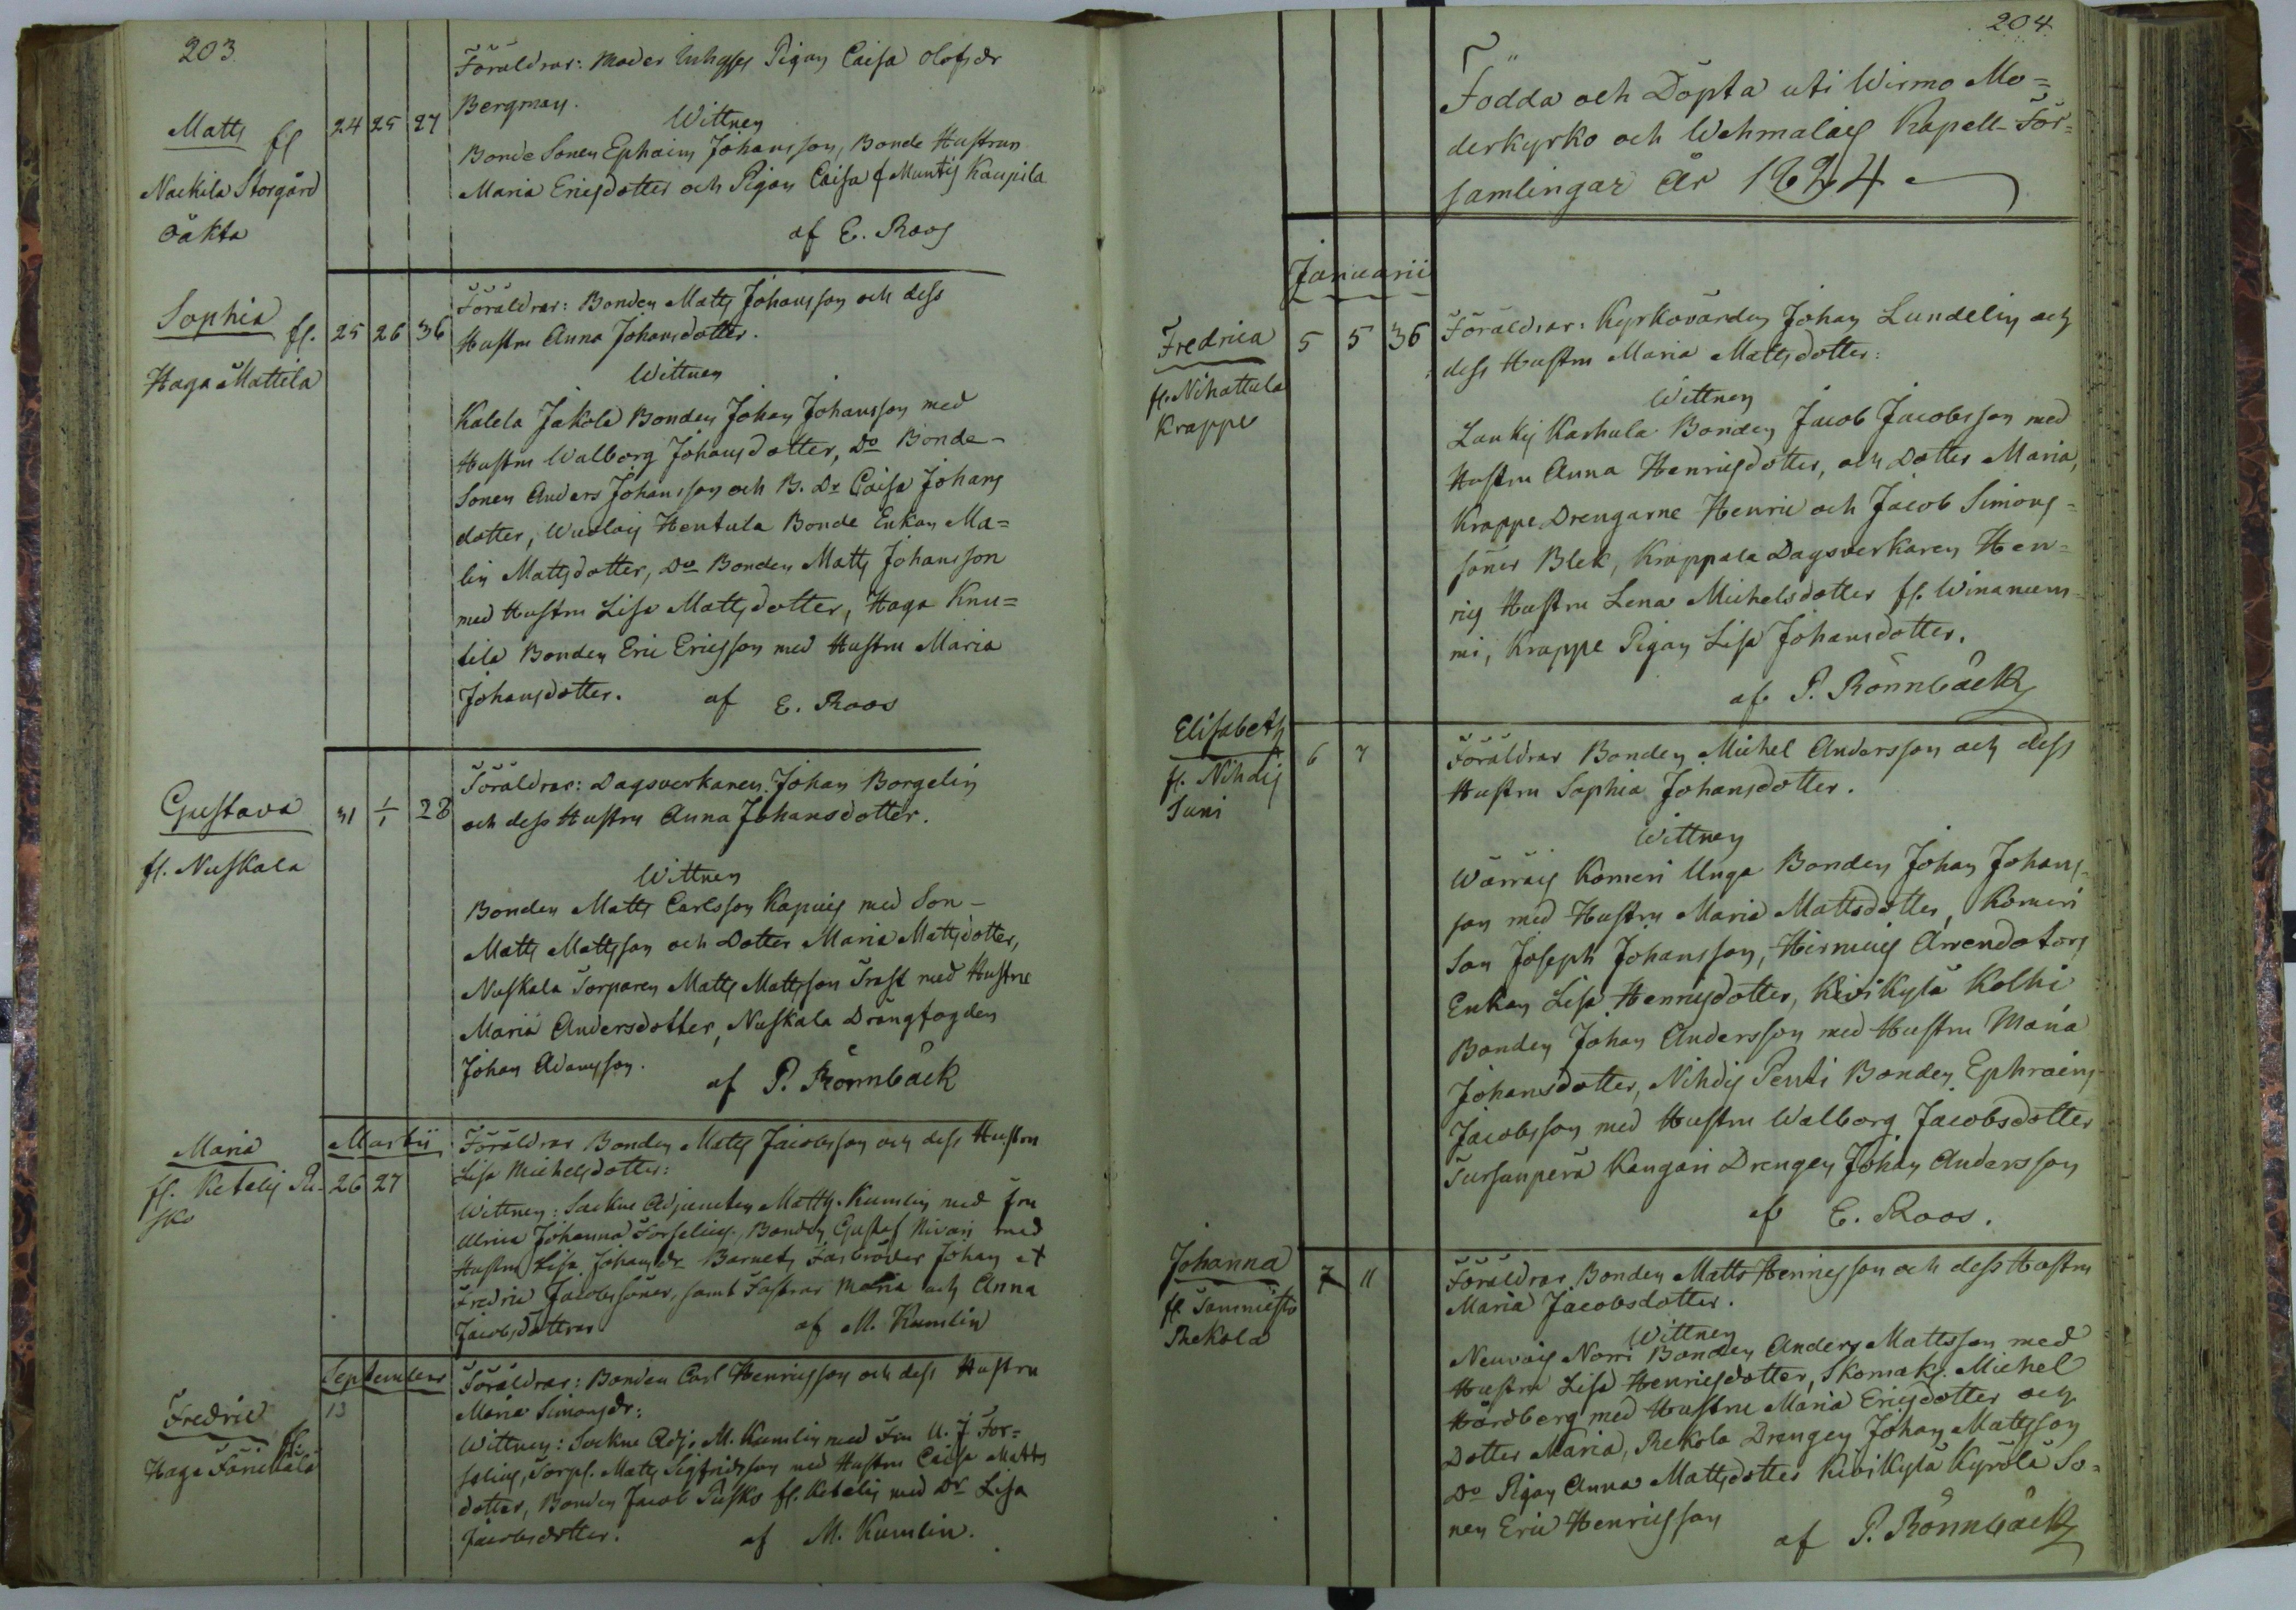 203
Föräldrar: Moder Inhyses Pigan Caisa Olofsdr
Bergman.
Matts fr
24 25 27
Wittnen
Bonde Sonen Ephaim Johansson, Bonde Hustrun
Naekila Storgård
Maria Ericsdotter och Pigan Caisa f Muntis Kaupila
Oäkta
af E. Roos
Sophia fr.
25 26 36
Föräldrar: Bonden Matts Johansson och dess
Hustru Anna Johansdotter.
Haga Mattila
Wittnen
Kalela Jakola Bonden Johan Johansson med
Hustru Walborg Johansdotter, Do Bonde-
Sonen Anders Johansson och B. Dr Caisa Johans
dotter, Hentula Bonde Enkan Ma=
lin Mattsdotter, Do Bonden Matts Johansson
med Hustru Lisa Mattsdotter, Haga Knu=
tila Bonden Eric Ericsson med Hustru Maria
Johansdotter. af E. Roos
Gustava
31 1/1 28
Föräldrar: Dagsverkaren Johan Borgelin
och dess Hustru Anna Johansdotter.
fr. Nuskala
Wittnen
Bonden Matts Carlsson Kapuis med Son-
Matts Mattsson och Dotter Maria Mattsdotter,
Nuskala Torparen Matts Mattsson Trast med Hustru
Maria Andersdotter, Nuskala Drängfogden
Johan Adamsson. af P. Rönnbäck
Maria
Martii
Föräldrar Bonden Matts Jacobsson och dess Hustru
fr. Ketelis Pu-
sko
26 27
Lisa Michelsdotter:
Wittnen: Sockne Adjuncten Matth. Kumlin med Fru
Ulrica Johanna Forselius. Bonden Gustaf Nivari med
Hustru Lisa Johansdr Barnets Farbröder Johan et
Fredric Jacobssöner, samt Fastrar Maria och Anna
Jacobsdöttrar af M. Kumlin
Septembris
Föräldrar: Bonden Carl Henricsson och dess Hustru
Fredric fr.
13
Maria Simonsdr:
Haga
Wittnen: Sockne Adj. M. Kumlin med Fru U. J. For=
selius, Torp. Matts Sigfridsson med Hustru Caisa Matts
dotter, Bonden Jacob Pusko fr. Ketelis med Dr Lisa
Jacobsdotter. af M. Kumlin.
204
Födda och Döpta uti Wirmo Mo=
derkyrko och Wehmalais Kapell-För=
samlingar År 1824
Januarii
Fredrica
5 5 36
Föräldrar: Kyrkovärden Johan Lundelin och
dess Hustru Maria Mattsdotter:
fr. Nihattula
Krappe
Wittnen
Laukis Karhula Bonden Jacob Jacobsson med
Hustru Anna Henricsdotter, och Dotter Maria,
Krappe Drengarne Henric och Jacob Simons=
söner Blek, Krappala Dagsverkaren Hen=
rics Hustru Lena Michelsdotter fr. Winanum-
mi, Krappe Pigan Lisa Johansdotter.
af P. Rönnbäck
Elisabeth
6 7
Föräldrar Bonden Michel Andersson och dess
Hustru Sophia Johansdotter.
fr. Nihdis
Juni
Wittnen
Wärrais Komeri Unga Bonden Johan Johans-
son med Hustru Maria Mattsdotter, Komeri
Son Joseph Johansson, Hirmuis Arrendators
Enkan Lisa Henricsdotter, Kivikylä Kolki
Bonden Johan Andersson med Hustru Maria
Johansdotter, Nihdis Penti Bonden Ephraim
Jacobsson med Hustru Walborg Jacobsdotter
Tursunperä Kangari Drengen Johan Andersson
af E. Roos.
Johanna
7 11
Föräldrar Bonden Matts Henricsson och dess Hustru
Maria Jacobsdotter.
fr. Tammisto
Rekola
Wittnen
Neuvois Norri Bonden Anders Mattsson med
Hustru Lisa Henricsdotter, Skomak. Michel
Hårdberg med Hustru Maria Ericsdotter och
Dotter Maria, Rekola Drengen Johan Mattsson
Do Pigan Anna Mattsdotter Kivikylä Kyrölä So=
nen Eric Henricsson
af P. Rönnbäck